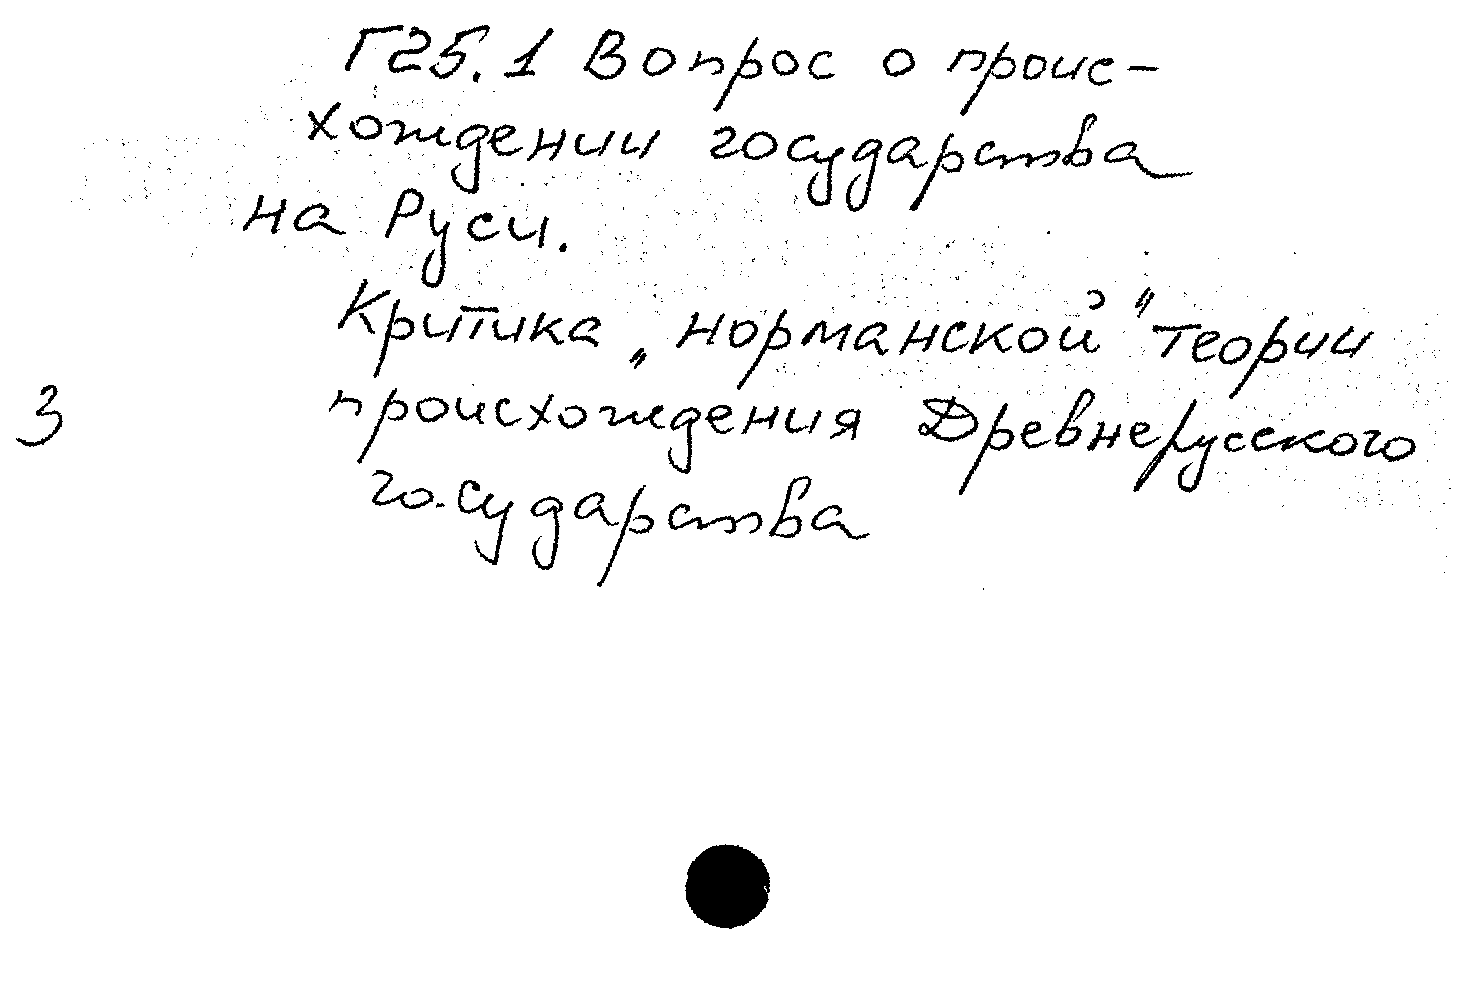 Г25.1 Вопрос о проис-
хождении государства
на Руси.
Критика „норманской" теории
3 происхождения Древнерусского
государства